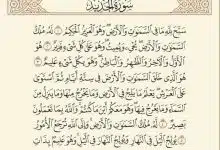 سُورَةُ الْحَدِيدِ
سَبَّحَ لِلَّهِ مَا فِي السَّمَٰوَٰتِ وَالْأَرْضِ وَهُوَ الْعَزِيزُ الْحَكِيمُ ۝ لَهُ
مُلْكُ السَّمَٰوَٰتِ وَالْأَرْضِ يُحْيِي وَيُمِيتُ وَهُوَ عَلَىٰ كُلِّ شَيْءٍ قَدِيرٌ ۝ هُوَ
الْأَوَّلُ وَالْآخِرُ وَالظَّاهِرُ وَالْبَاطِنُ وَهُوَ بِكُلِّ شَيْءٍ عَلِيمٌ ۝
هُوَ الَّذِي خَلَقَ السَّمَٰوَٰتِ وَالْأَرْضَ فِي سِتَّةِ أَيَّامٍ ثُمَّ اسْتَوَىٰ
عَلَى الْعَرْشِ يَعْلَمُ مَا يَلِجُ فِي الْأَرْضِ وَمَا يَخْرُجُ مِنْهَا وَمَا يَنزِلُ مِنَ
السَّمَاءِ وَمَا يَعْرُجُ فِيهَا وَهُوَ مَعَكُمْ أَيْنَ مَا كُنتُمْ وَاللَّهُ بِمَا تَعْمَلُونَ
بَصِيرٌ ۝ لَّهُ مُلْكُ السَّمَٰوَٰتِ وَالْأَرْضِ وَإِلَى اللَّهِ تُرْجَعُ الْأُمُورُ
۝ يُولِجُ اللَّيْلَ فِي النَّهَارِ وَيُولِجُ النَّهَارَ فِي اللَّيْلِ